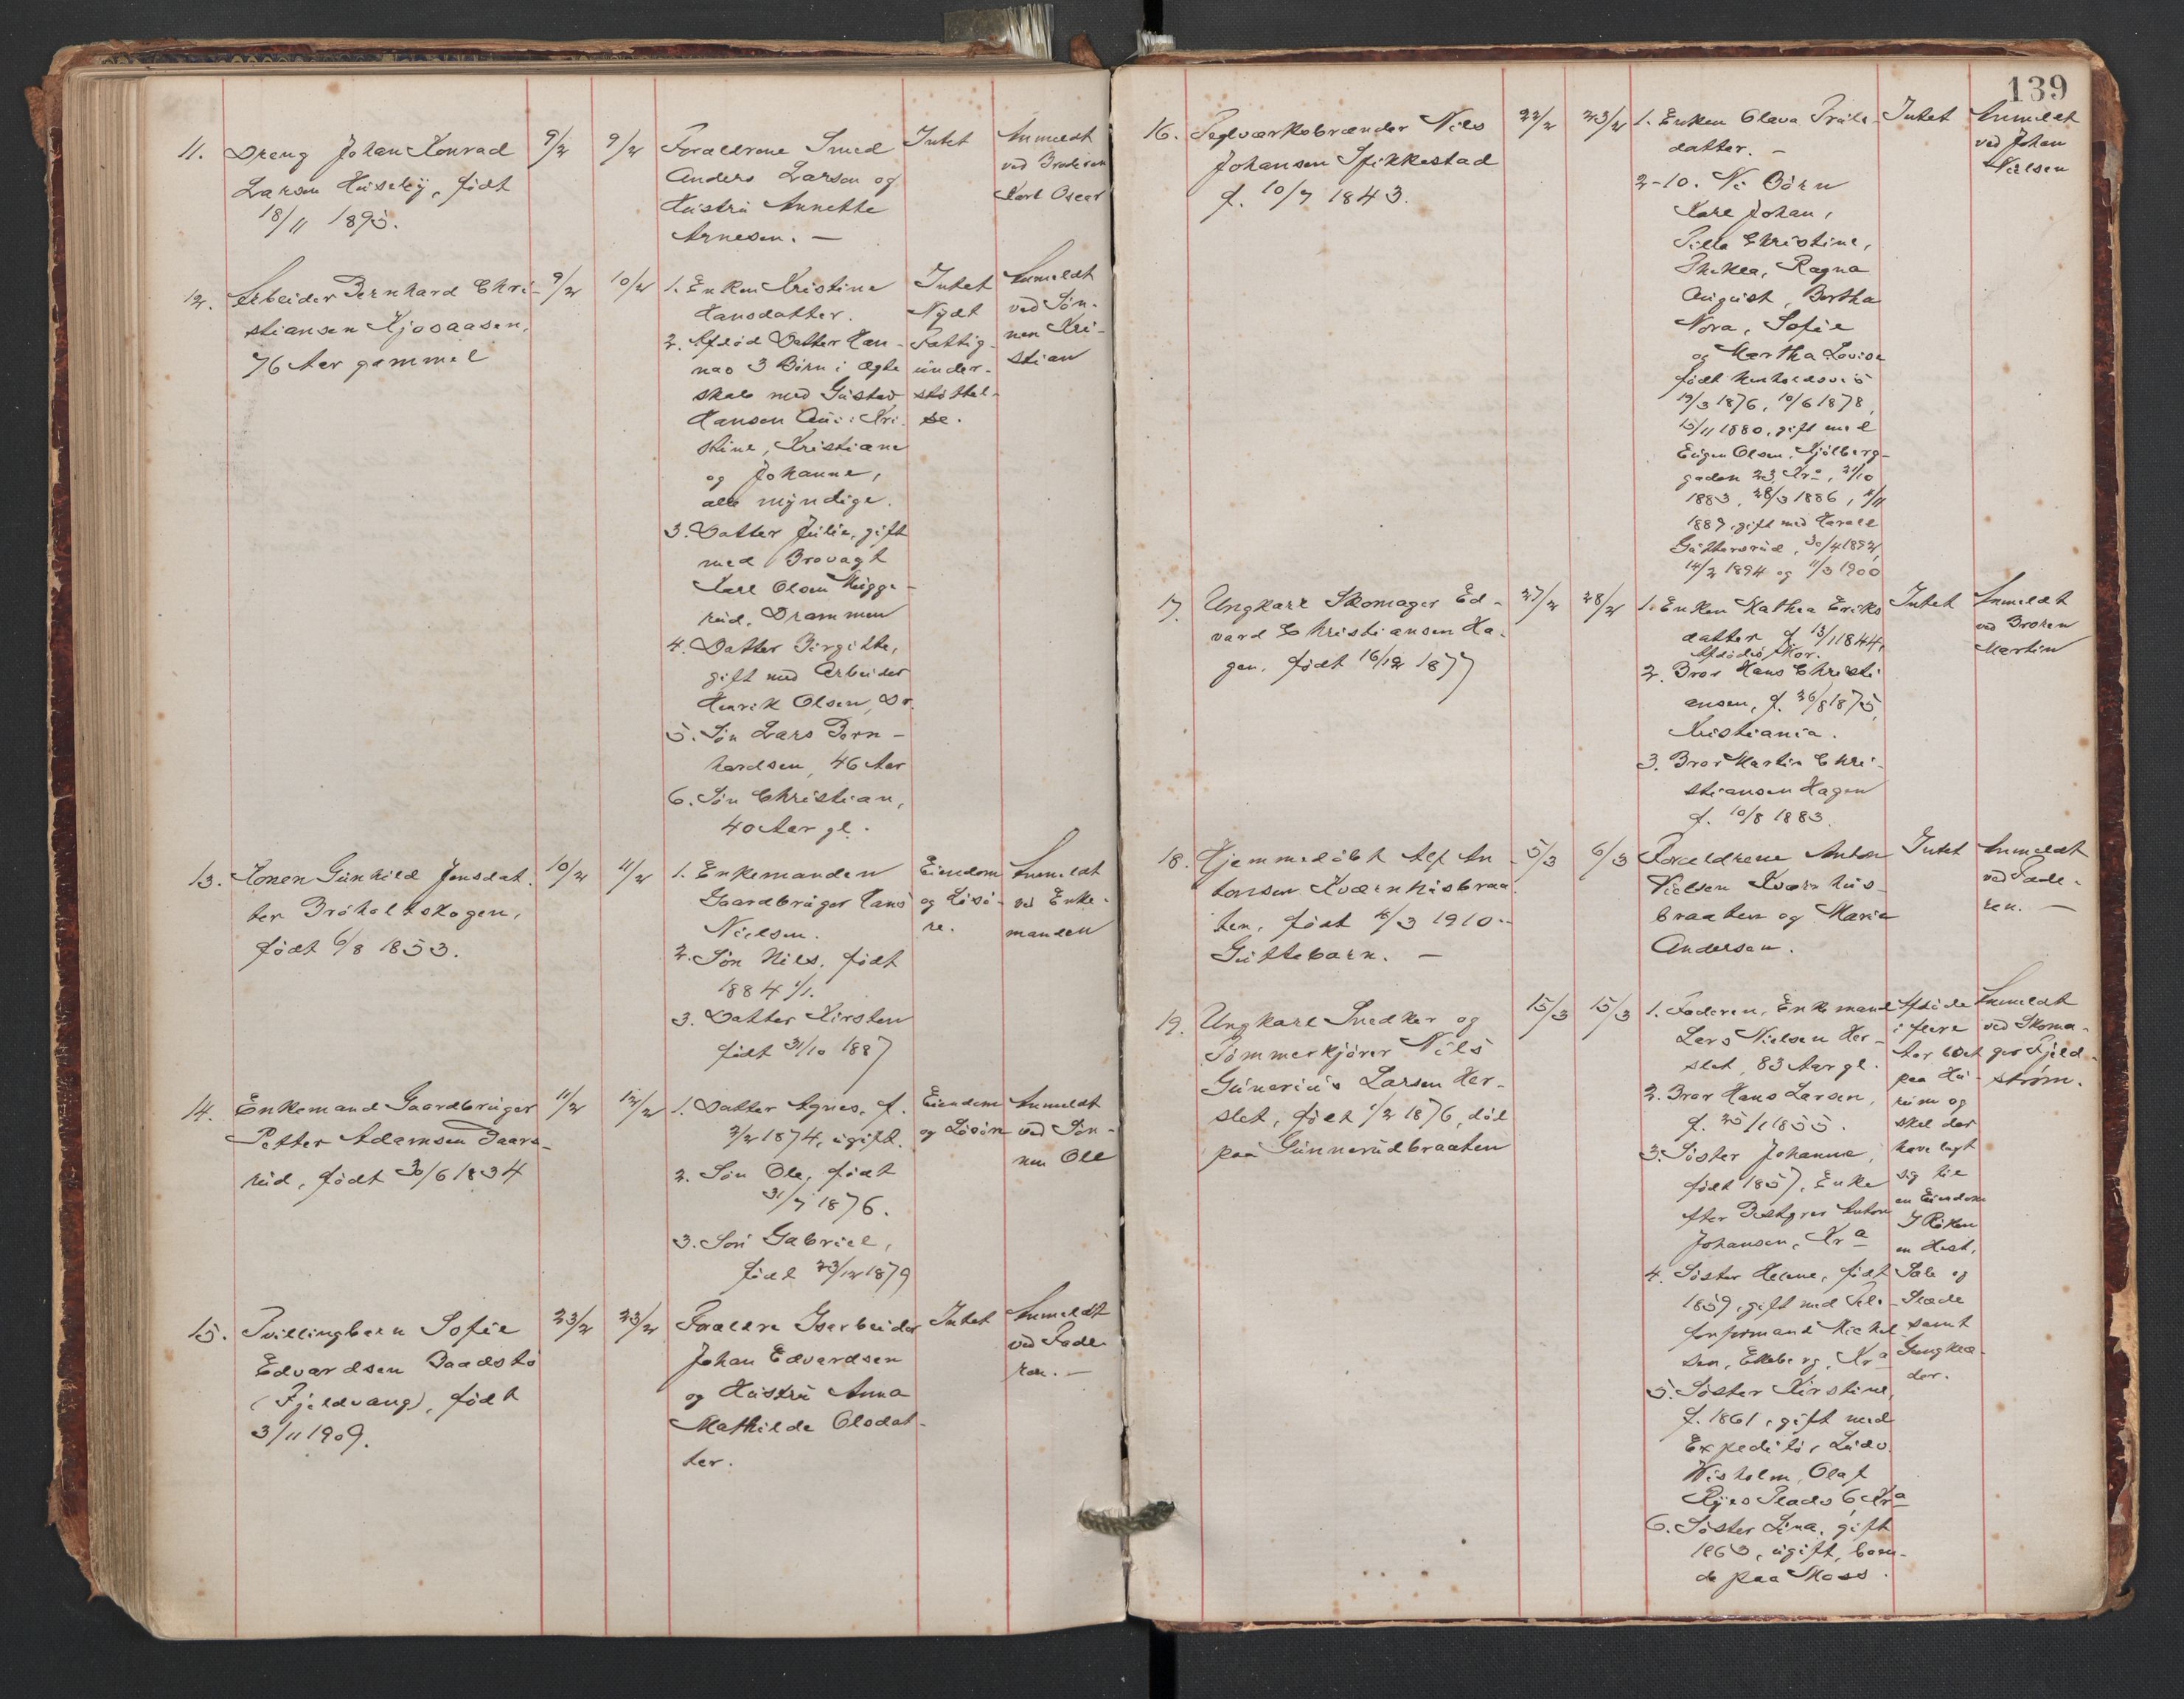 139
11. Dreng Johan Konrad
Larsen Huseby, født
18/11 1895.
9/2
9/2
Forældrene Smed
Anders Larsen og
Hustru Annette
Arnesen. —
Intet
Anmeldt
ved Broderen
Karl Oscar
12. Arbeider Bernhard Chri-
stiansen Kjosaasen,
76 Aar gammel
9/2
10/2
1. Enken Kristine
Hansdatter.
2. Afdød Datter Han-
nas 3 Børn i Ægte
skab med Gustav
Hansen Kri-
stine, Kristiane
og Johanne,
alle myndige.
3. Datter Julie, gift
med Brovagt
Karl Olsen Mugge-
rud, Drammen
4. Datter Birgitte,
gift med Arbeider
Henrik Olsen, Dr.
5. Søn Lars Bern-
hardsen, 46 Aar
6. Søn Christian,
40 Aar gl.
Intet
Nydt
Fattig-
under-
støttel-
se.
Anmeldt
ved Søn-
nen Kri-
stian
13. Konen Gunhild Jensdat-
ter Bråholtskogen,
født 6/8 1853.
10/2
11/2
1. Enkemanden
Gaardbruger Hans
Nielsen.
2. Søn Nils, født
1884 1/1.
3. Datter Kirsten
født 31/10 1887
Eiendom
og Løsø-
re.
Anmeldt
ved Enke-
manden
14. Enkemand Gaardbruger
Petter Adamsen Daars-
rud, født 30/6 1834
11/2
12/2
1. Datter Agnes, f.
2/2 1874, ugift.
2. Søn Ole, født
31/7 1876.
3. Søn Gabriel,
født 23/12 1879
Eiendom
og Løsøre
Anmeldt
ved Søn-
nen Ole
15. Tvillingbarn Sofie
Edvardsen Baadstø
(Fjeldvang), født
3/11 1909.
23/2
23/2
Forældre Isarbeider
Johan Edvardsen
og Hustru Anna
Mathilde Olsdat-
ter.
Intet
Anmeldt
ved Fade-
ren. —
16. Teglværksbrænder Nils
Johansen Spikkestad
f. 10/7 1843.
22/2
23/2
1. Enken Olava Truls-
datter. —
2-10. Ni Børn
Karl Johan,
Tilla Christine,
Thekla, Ragna
August, Bertha
Nora, Sofie
og Martha Lovise
født henholdsvis
19/3 1876, 10/6 1878,
15/11 1880, gift med
Eugen Olsen, Kjølberg-
gaden 23, Kra, 21/10
1883, 28/3 1886, 4/11
1889, gift med Harald
Guttersrud, 30/4 1892,
14/2 1894 og 11/3 1900
Intet
Anmeldt
ved Johan
Nielsen
17. Ungkarl Skomager Ed-
vard Christiansen Ha-
gen, født 16/12 1877
27/2
28/2
1. Enken Mathea Eriks
datter f. 13/1 1844,
Afdødes Mor.
2. Bror Hans Christi
ansen, f. 26/8 1875,
Kristiania.
3. Bror Martin Chri-
stiansen Hagen
f. 10/8 1883.
Intet
Anmeldt
ved Broren
Martin
18. Hjemmedøbt Alf An-
tonsen Kværnhusbraa-
ten, født 4/3 1910.
Guttebarn. —
5/3
6/3
Forældrene Anton
Nielsen Kværnhus-
braaten og Marie
Andersen.
Intet
Anmeldt
ved Fade-
ren. —
19. Ungkarl Snedker og
Tømmerkjører Nils
Gunerius Larsen Her-
slet, født 1/2 1876, død
paa Gunnerudbraaten
15/3
15/3
1. Faderen, Enkemand
Lars Nielsen Her-
slet, 83 Aar gl.
2. Bror Hans Larsen,
f. 25/1 1855.
3. Søster Johanne,
født 1857, Enke
efter Anton
Johansen, Kra
4. Søster Helene, født
1859, gift med Tele-
fonformand Mickel-
sen, Ekeberg, Kra
5. Søster Kirstine,
f. 1861, gift med
Expeditør Ludv.
Wisholm, Olaf
Ryes Plads 6 Kra
6. Søster Lina, gift
1863, ugift, boen-
de paa Moss.
Afdøde
i flere
Aar boet
paa Hu-
rum og
skal der
have lagt
sig til
en Eiendom
I Røken
en Hest,
Sale og
Slæde
samt
Gangklæ-
der.
Anmeldt
ved Skoma-
ger Fjeld-
strøm.